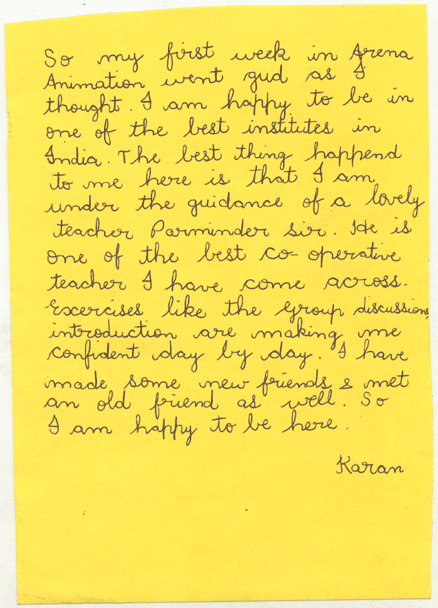 So my first week in Arena
Animation went gud as I
thought. I am happy to be in
one of the best institutes in
India. The best thing happend
to me here is that I am
under the guidance of a lovely
teacher Parminder sir. He is
one of the best co-operative
teacher I have come across.
Exercises like the group discussions,
introduction are making me
confident day by day. I have
made some new friends & met
an old friend as well. So
I am happy to be here.
Karan